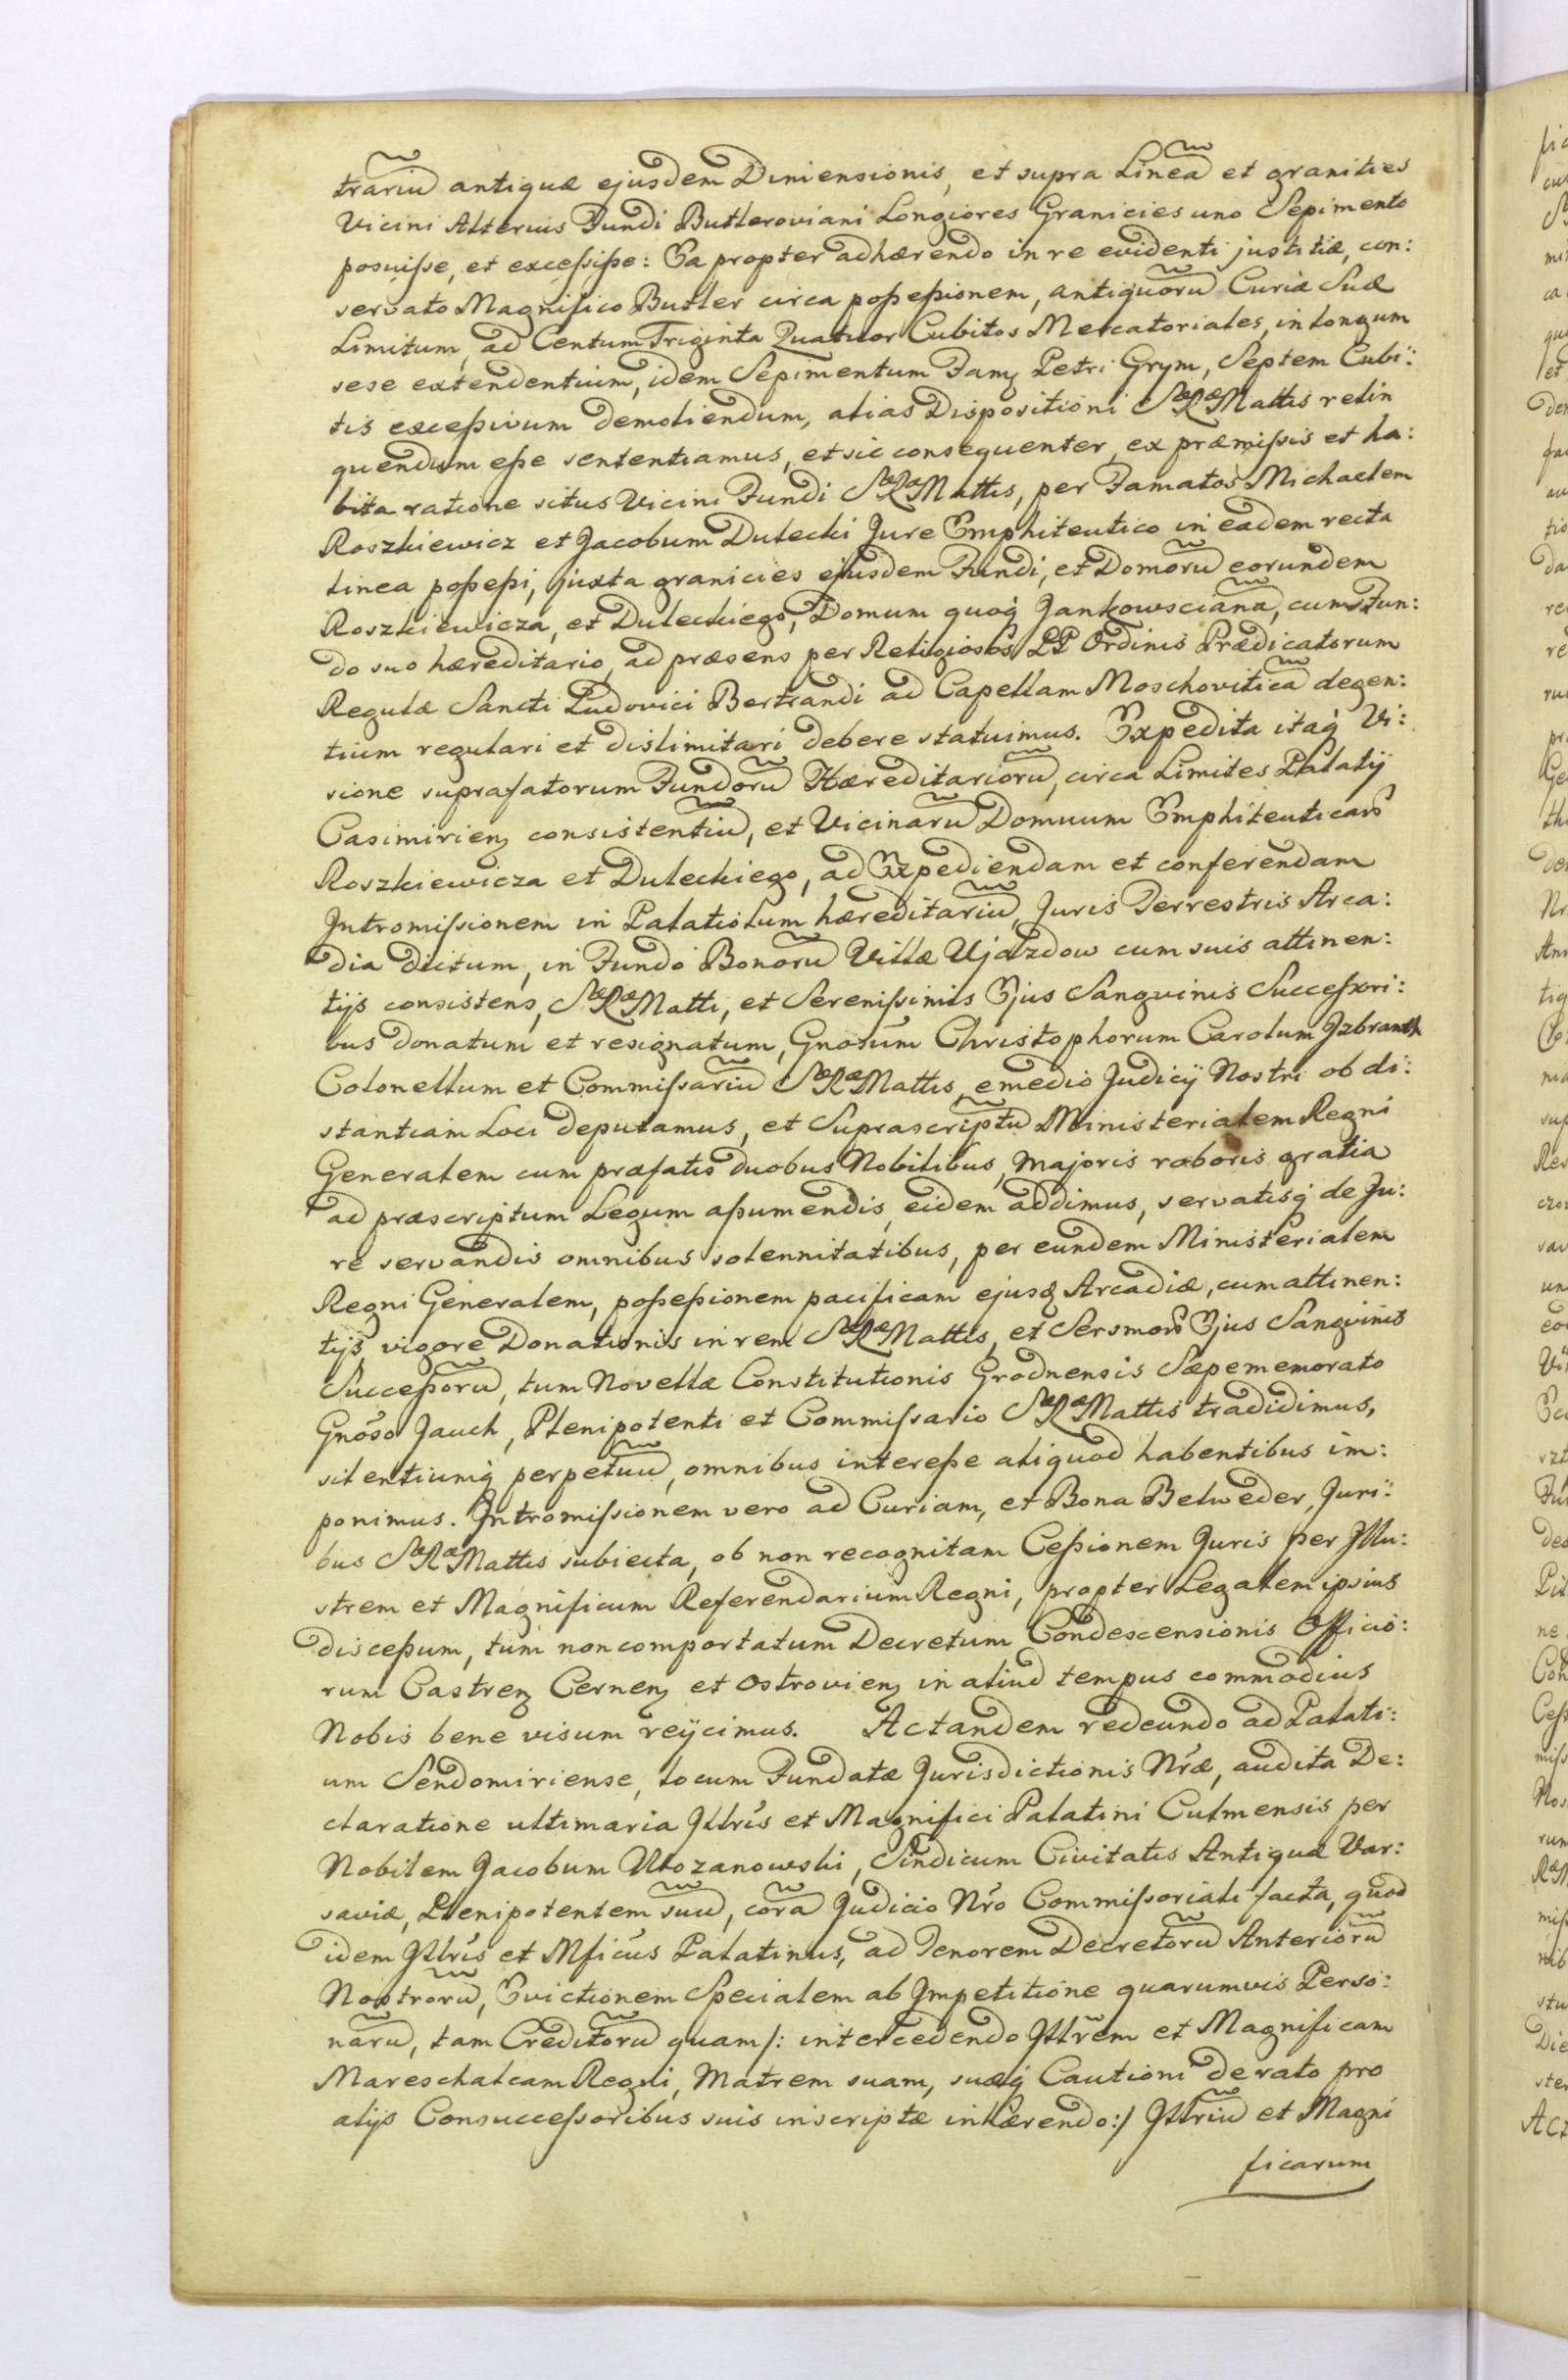 trariũ antiquæ ejusdem Dimensionis, et supra Lineã et granities
Vicini Alterius Fundi Butleroviani Longiores Granicies uno Sepimento
posuiſse, et exceſsiſse: Ea propter adhærendo in re evidenti justitiæ, con:
servato Magnifico Butler circa poſseſsionem, antiquorũ Curiæ Suæ
Limitum, ad Centum Triginta Quatuor Cubitos Mercatoriales, in longum
sese extendentium, idem Sepimentum Famȝ Petri Grym, Septem Cubi:
tis exceſsivum demoliendum, alias Dispositioni SæRæMattis relin
quendum eſse sententiamus, et sic consequenter, ex præmiſsis et ha:
bita ratione situs Vicini Fundi SæRæMattis, per Famatos Michaelem
Roszkiewicz et Jacobum Dulecki Jure Emphiteutico in eadem recta
linea poſseſsi, juxta granicies ejusdem Fundi, et Domorũ eorundem
Roszkiewicza, et Duleckiego, Domum quoq́ Jankowscianã, cum Fun:
do suo hæreditario, ad præsens per Religiosos PP Ordinis Prædicatorum
Regulæ Sancti Ludovici Bertrandi ad Capellam Moschoviticã degen:
tium regulari et dislimitari debere statuimus. Expedita itaq́ Vi:
sione suprafatorum Fundorũ Hæreditariorũ, circa Limites Palatij
Casimirienȝ consistentiũ, et Vicinarũ Domuum Emphiteuticarũ
Roszkiewicza et Duleckiego, ad Expediendam et conferendam
Intromiſsionem in Palatiolum hæreditariũ, Juris Terrestris Arca:
dia dictum, in Fundo Bonorũ Villæ Ujazdow cum suis attinen:
tijs consistens, SæRæMatti, et Sereniſsimis Ejus Sangvinis Succeſsori:
bus donatum et resignatum, Gnosum Christophorum Carolum Jzbranth
Colonellum et Commiſsariũ SæRæMattis, e medio Judicij Nostri ob di:
stantiam Loci deputamus, et Suprascriptũ Ministerialem Regni
Generalem cum præfatis duobus Nobilibus, majoris roboris gratia
ad præscriptum Legum aſsumendis, eidem addimus, servatisq́ de Ju:
re servandis omnibus solennitatibus, per eundem Ministerialem
Regni Generalem, poſseſsionem pacificam ejusȝ Arcadiæ, cum attinen:
tijs vigore Donationis in rem SæRæMattis, et Sersmorũ Ejus Sangvinis
Succeſsorũ, tum Novellæ Constitutionis Grodnensis Sæpememorato
Gnoso Jauch, Plenipotenti et Commiſsario SæRæMattis tradidimus,
silentiumq́ perpetuũ, omnibus intereſse aliquod habentibus im:
ponimus. Intromiſsionem vero ad Curiam, et Bona Belweder, Juri:
bus SæRæMattis subiecta, ob non recognitam Ceſsionem Juris per Illu:
strem et Magnificum Referendarium Regni, propter Legalem ipsius
disceſsum, tum non comportatum Decretum Condescensionis Officio:
rum Castrenȝ Cernenȝ et Ostrovienȝ in aliud tempus commodius
Nobis bene visum reijcimus. Ac tandem redeundo ad Palati:
um Sendomiriense, locum Fundatæ Jurisdictionis Nræ, audita De:
claratione ultimaria Jllris et Magnifici Palatini Culmensis per
Nobilem Jacobum Mrozanowski, Sindicum Civitatis Antiquæ Var:
saviæ, Plenipotentem suũ, corã Judicio Nro Commiſsoriali facta, quod
idem Jllris et Mficus Palatinus, ad Tenorem Decretorũ Anteriorũ
Nostrorũ, Evictionem Specialem ab Impetitione quarumvis Perso:
narũ, tam Creditorũ quam /: intercedendo Jllrem et Magnificam
Mareschalcam Regni, Matrem suam, suæq́ Cautioni de rato pro
alijs Consucceſsoribus suis inscriptæ inhærendo :/ Jllriũ et Magni
ficarum